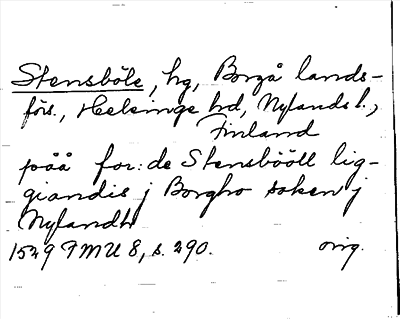 Stensböle, hg, Borgå lands-
förs., Helsinge hd, Nylands l.,
Finland
pöå for: de Stensbööll lig-
giandis j Borgho soken j
Nylandh
1529 FMU 8, s. 290. orig.